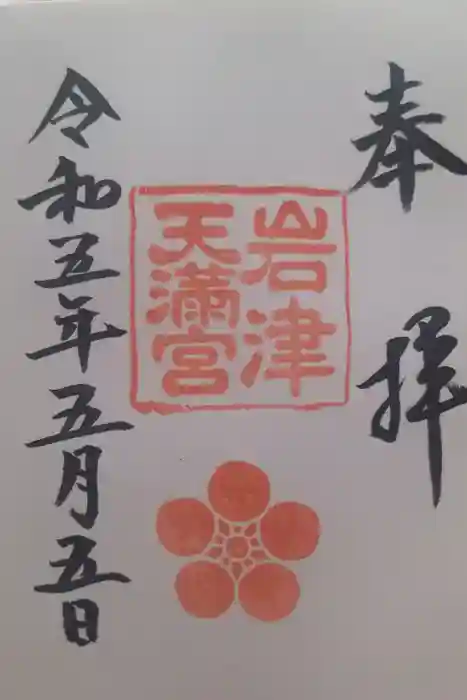 奉拝
岩津
天満宮
令和五年五月五日